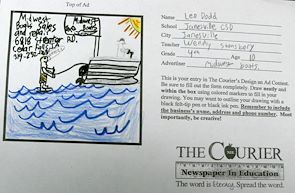 Top of Ad
Midwest
Boats Sales
and repairs
Cedar Falls
Midwest
Boats
Name Leo Dodd
School Janesville CSD
City Janesville
Teacher Wendy
Grade 4th Age 10
Advertiser Midwest boats
This is your entry in The Courier's Design an Ad Contest.
Be sure to fill out the form completely. Draw neatly and
within the box using colored markers to fill in your
drawing. You may want to outline your drawing with a
black felt-tip pen or black ink pen. Remember to include
the business's name, address and phone number. Most
importantly, be creative!
THE COURIER
Newspaper In Education
The word is Spread the word.